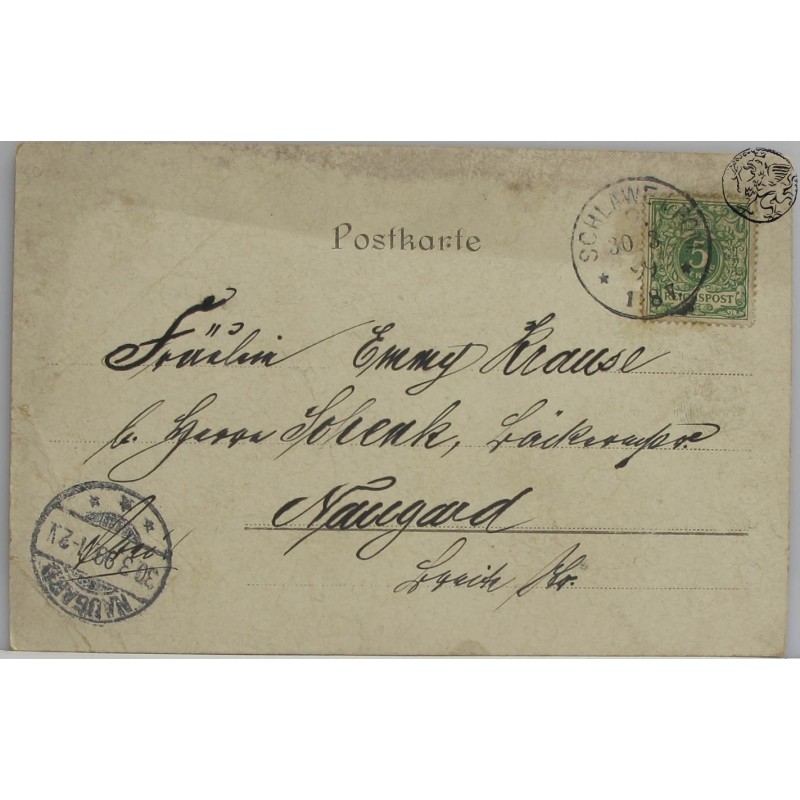 Postkarte
SCHLAWE
30 3
99
1-8
5
REICHSPOST
Fräulein Emmy Krause
b. Herrn Schenk, Bäckermstr.
Naugard
Breite Str.
NAUGARD
30.3.99 1-2N